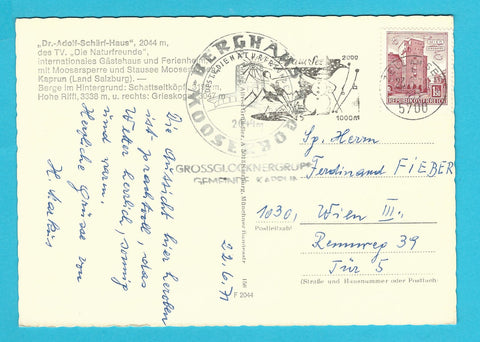 „Dr.-Adolf-Schärf-Haus", 2044 m,
des TV. „Die Naturfreunde",
internationales Gästehaus und Ferienheim
mit Moosersperre und Stausee Mooser
Kaprun (Land Salzburg). —
Berge im Hintergrund: Schattseitköpfl,
Hohe Riffl, 3338 m, u. rechts: Grieskogel
Die Aussicht hier heroben
ist prachtvoll, das
Wetter herrlich, sonnig
und warm.
Herzliche Grüsse von
22.6.71
BERGHAUS
MOOSERBODEN
GROSSGLOCKNERGRUPPE
GEMEINDE KAPRUN
2000
1000m
REPUBLIK ÖSTERREICH
5700
F 2044
Sp. Herrn
Ferdinand FIEBER
1030, Wien III.,
Postleitzahl
Rennweg 39
Tür 5
(Straße und Hausnummer oder Postfach)